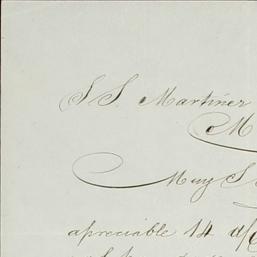 S S. Martinez
M
Muy S
apreciable 14 a/c